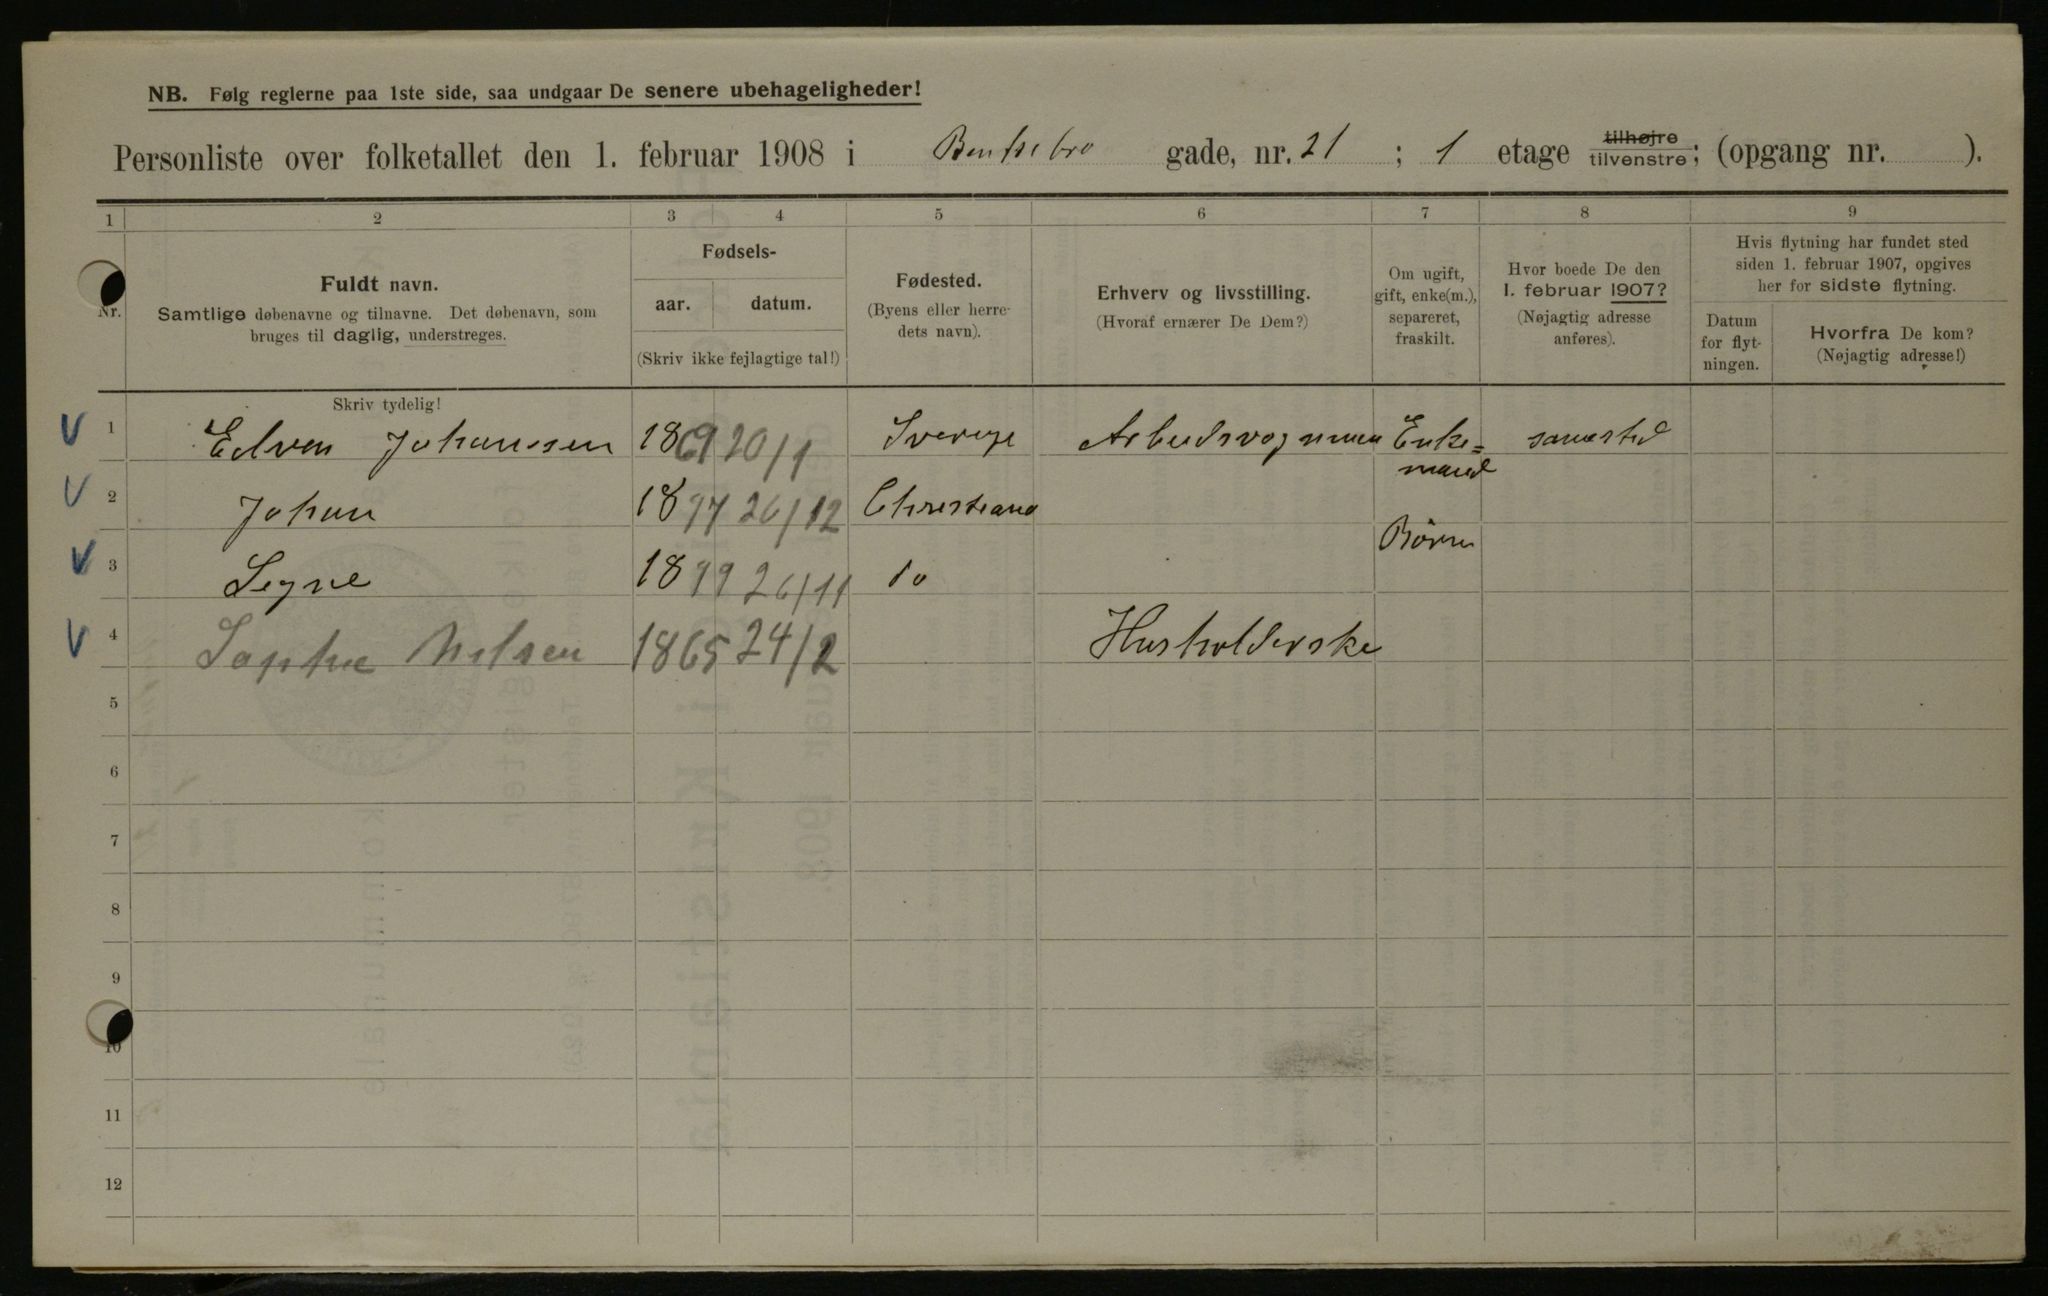 NB. Følg reglerne paa 1ste side, saa undgaar De senere ubehageligheder!
Personliste over folketallet den 1. februar 1908 i Bentsebro gade, nr. 21 ; 1 etage tilhøjre tilvenstre; (opgang nr. ).
1 2 3 4 5 6 7 8 9
Nr.
Fuldt navn.
Samtlige døbenavne og tilnavne. Det døbenavn, som
bruges til daglig, understreges.
Fødsels-
aar. datum.
(Skriv ikke fejlagtige tal!)
Fødested.
(Byens eller herre-
dets navn).
Erhverv og livsstilling.
(Hvoraf ernærer De Dem?)
Om ugift,
gift, enke(m.),
separeret,
fraskilt.
Hvor boede De den
1. februar 1907?
(Nøjagtig adresse
anføres).
Hvis flytning har fundet sted
siden 1. februar 1907, opgives
her for sidste flytning.
Datum
for flyt-
ningen.
Hvorfra De kom?
(Nøjagtig adresse!)
Skriv tydelig!
1 Edven Johanssen 1869 20/1 Sverige Enke= samested
mand
2 Johan 1897 26/12 Christiania
Børn
3 Signe 1899 26/11 do
4 Sophie Nilsen 1865 24/2 Husholderske
5
6
7
8
9
10
11
12